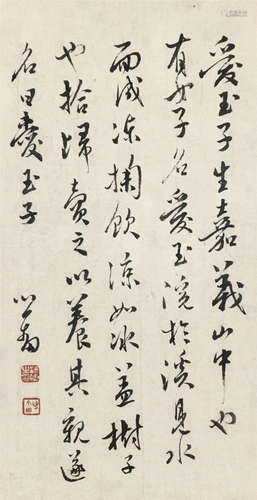 愛玉子生嘉義山中也
有女子名愛玉浣於溪見水
而成凍掬飲涼如冰蓋樹子
也拾歸賣之以養其親遂
名曰愛玉子
心畬